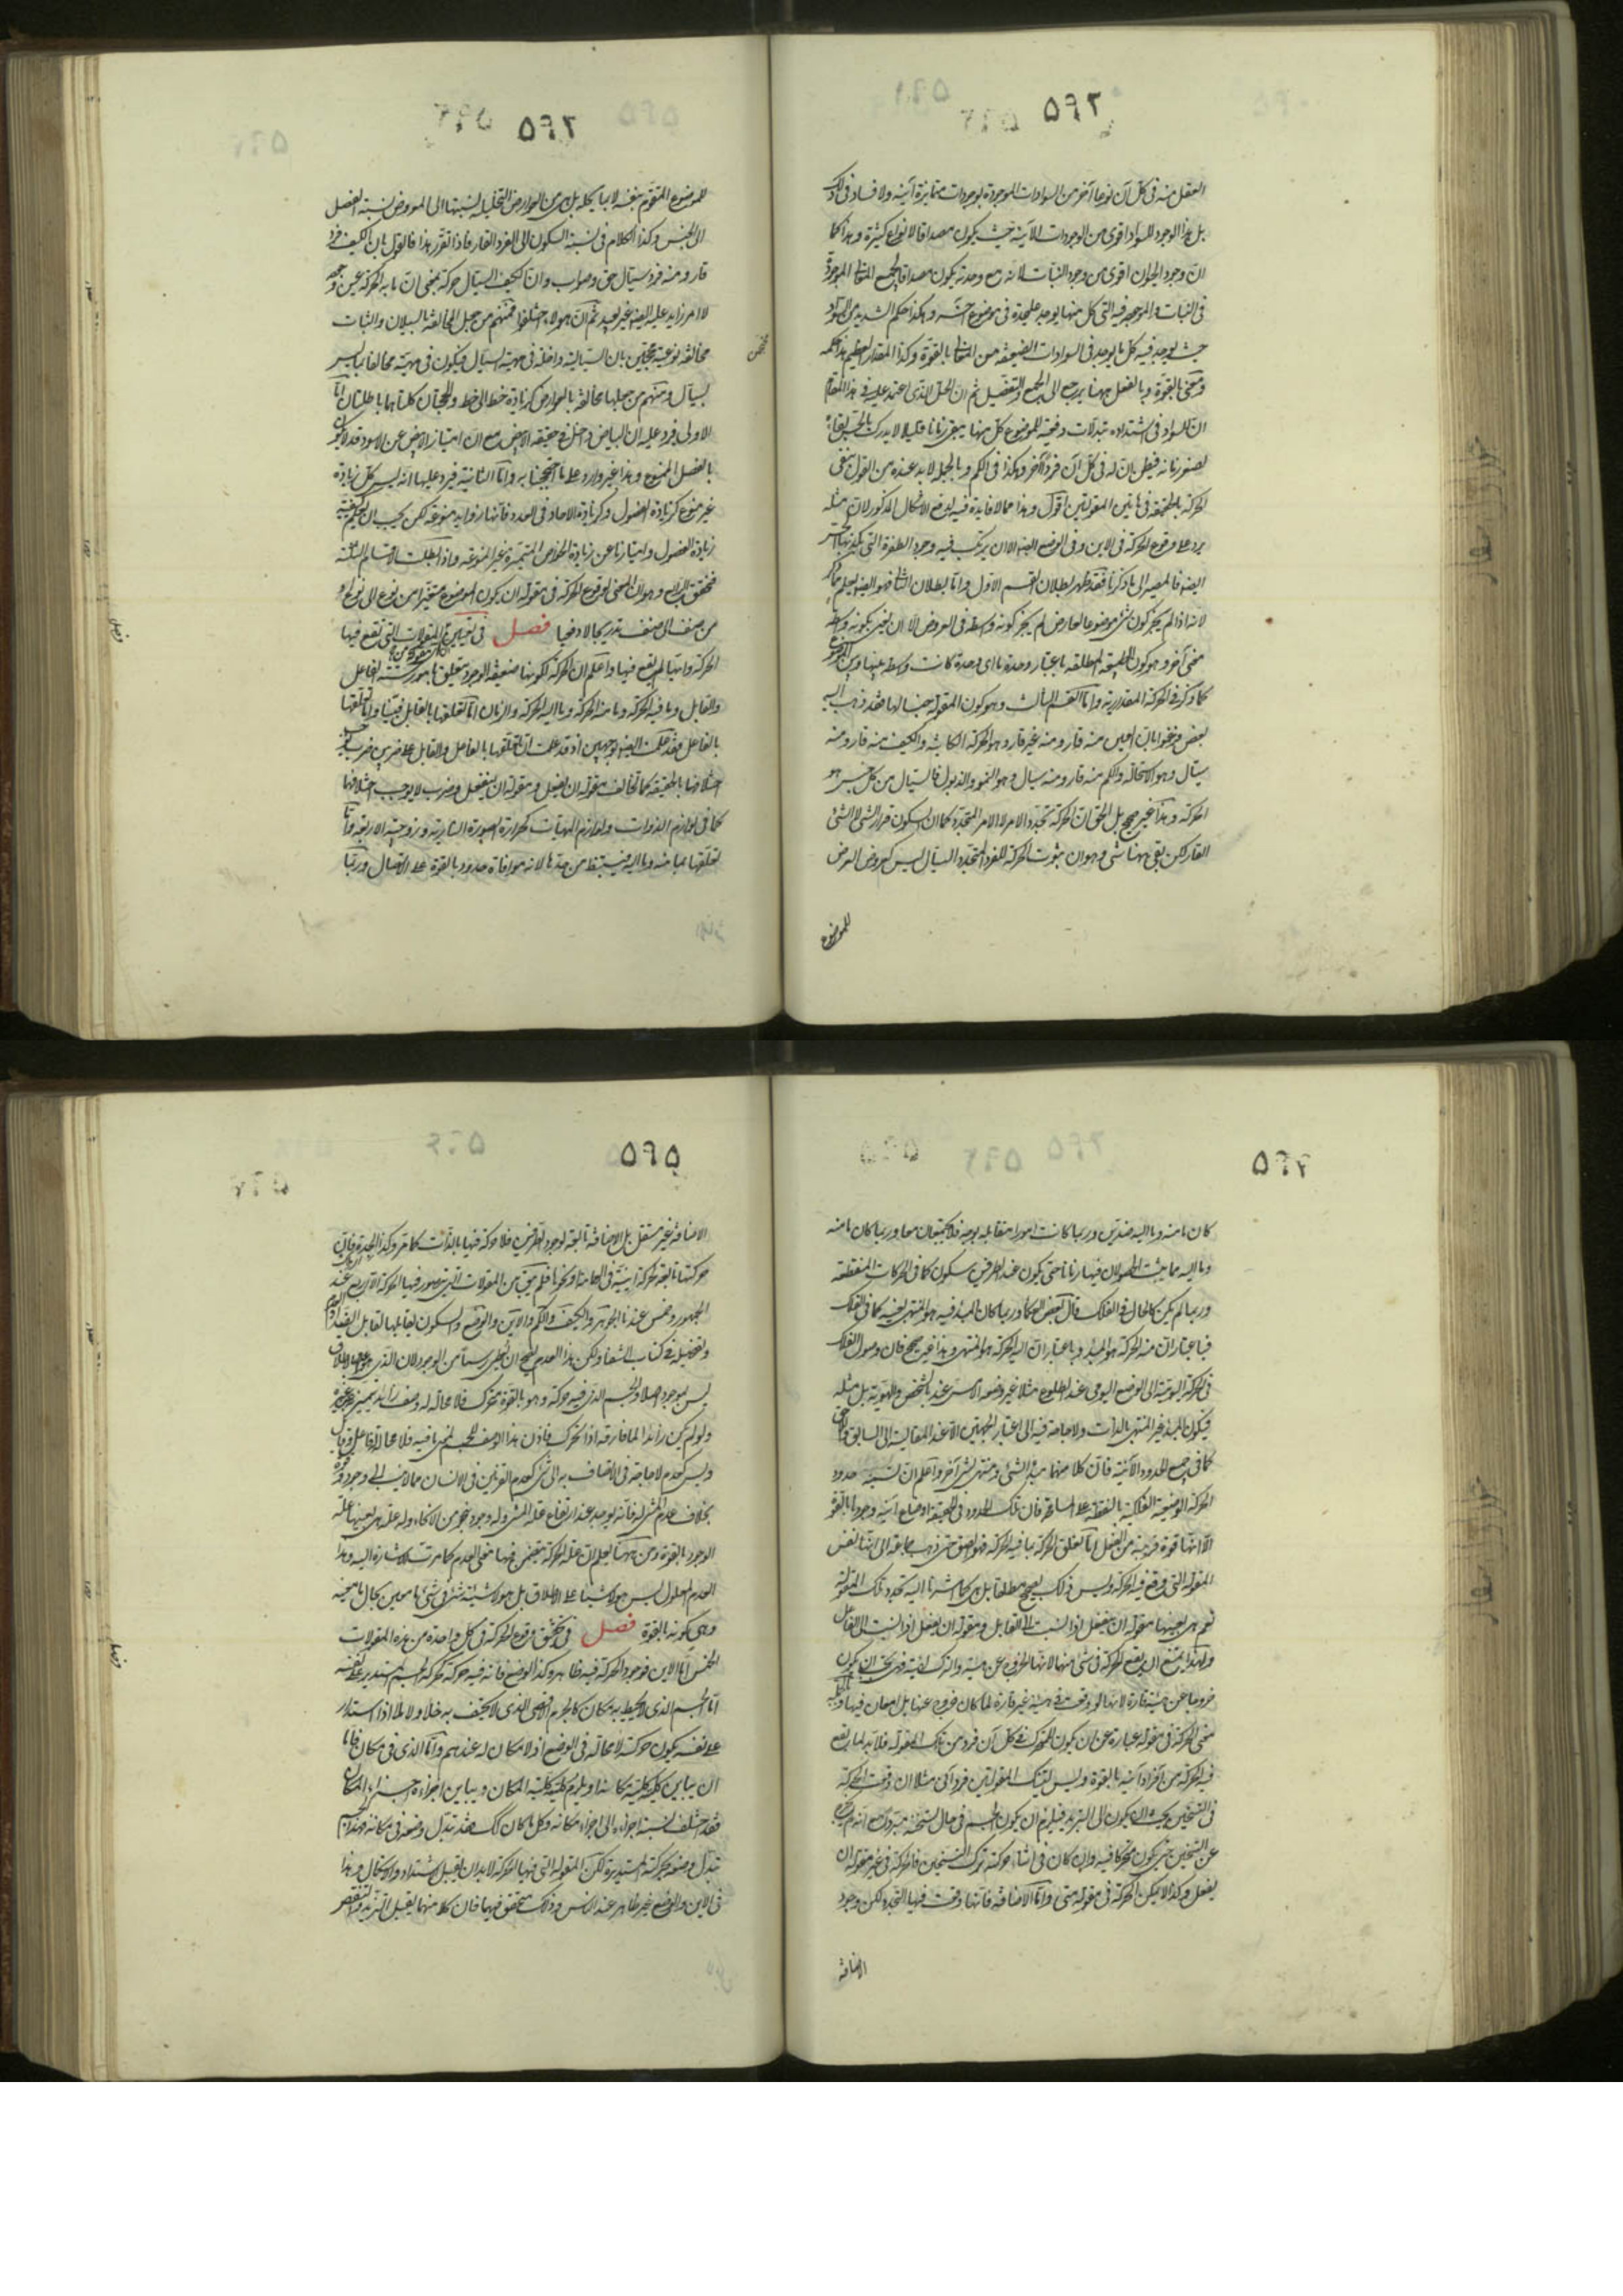 ۵۹۲
العقل منه فى كل آن نوعا آخر من السوادات الموجودة بوجودات متمايزة آنية ولا فساد فى ذلك
بل هذا الوجود للسواد اقوى من الوجودات الآنية حيث يكون مصداقا لانواع كثيرة وهذا كما
ان وجود الحيوان اقوى من وجود النبات لانه مع وحدته يكون مصداقا لجميع المعانى الموجودة
فى النبات والموجود فيه التى كل منها يوجد عليحدة فى موضوع آخر وهكذا حكم الشديد من السواد
حيث يوجد فيه كل ما يوجد فى السوادات الضعيفة من المعانى بالقوة وكذا المقدار العظيم هذا حكمه
ومعنى بالقوة وبالفعل ههنا يرجع الى الجمع والتفصيل ثم ان الحل الذى اعتمد عليه فى هذا المقام
ان للسواد فى اشتداده تبدلات دفعية للموضوع كل منها يبقى زمانا قليلا لا يدرك بالحس بقاؤه
لصغر زمانه فيظن ان له فى كل آن فردا آخر وهكذا فى الكم وبالجملة لا بد عنده من القول بنفى
الحركة بالحقيقة فى هاتين المقولتين اقول وهذا مما لا فايدة فيه لدفع الاشكال المذكور لان مثله
يرد على وقوع الحركة فى الاين وفى الوضع ايضا الا ان يرتكب فيه وجود الطفرة التى يكذبها الحس
ايضا فالمصير الى ما ذكرنا فقد ظهر بطلان القسم الاول واما بطلان الثانى فهو ايضا يعلم مما ذكر
لانه اذا لم يجز كون شئ موضوعا لعارض لم يجز كونه واسطة فى العروض الا ان يعنى بكونه واسطة
معنى آخر وهو كون الطبيعة المطلقة باعتبار وحدة ما اى وحدة كانت واسطة بينها وبين الموضوع
كما ذكر فى الحركة المقدارية واما القسم الثالث وهو كون المقولة جنسا لها فقد ذهب اليه
بعض وزعموا بان الاين منه قار ومنه غير قار وهو الحركة المكانية والكيف منه قار ومنه
سيال وهو الاستحالة والكم منه قار ومنه سيال وهو النمو والذبول فالسيال من كل جنس هو
الحركة وهذا غير صحيح بل الحق ان الحركة تجدد الامر لا الامر المتجدد كما ان السكون قرار الشئ لا الشئ
القار لكن بقى ههنا شئ وهو ان ثبوت الحركة للفرد المتجدد السيال ليس كعروض العرض
للموضوع
۵۹۳
للموضوع المتقوم بنفسه لا بما يحله بل من العوارض التحليلية نسبتها الى المعروض نسبة الفصل
الى الجنس وكذا الكلام فى نسبة السكون الى الفرد القار فاذا تقرر هذا فالقول بان الكيف منه فرد
قار ومنه فرد سيال حق وصواب وان الكيف السيال حركة بمعنى ان ما به الحركة عين وجوده
لا امر زايد عليه ايضا غير بعيد ثم ان هؤلاء اختلفوا فمنهم من جعل المخالفة بالسيلان والثبات
مخالفة نوعية محتجين بان السيالية داخلة فى مهية السيال فيكون فى مهيته مخالفا لما ليس
بسيال ومنهم من جعلها مخالفة بالعوارض كزيادة خط الى خط والحجتان كلتاهما باطلتان اما
الاولى فيرد عليه ان البياض داخل فى حقيقة الابيض مع ان امتياز الابيض عن الاسود قد لا يكون
بالفصل المنوع وهذا غير وارد على ما احتججنا به واما الثانية فيرد عليها انه ليس كل زيادة
غير منوع كزيادة الفصول وكزيادة الآحاد فى العدد فانها زوايد منوعة لكن يجب ان يعلم كيفية
زيادة الفصول وامتيازها عن زيادة الخواص المتميزة غير المنوعة واذا بطلت الاقسام الثلثة
فتحقق الرابع وهو ان المعنى لوقوع الحركة فى مقولة ان يكون الموضوع متغيرا من نوع الى نوع او
من صنف الى صنف تدريجا لا دفعيا فصل فى تعيين المقولات التى تقع فيها
الحركة وانها لم يقع فيها واعلم ان الحركة لكونها ضعيفة الوجود يتعلق بامور ستة الفاعل
والقابل وما فيه الحركة وما منه الحركة وما اليه الحركة والزمان اما تعلقها بالقابل فبينا واما تعلقها
بالفاعل فقد علمت ايضا بوجهين اذ قد علمت ان تعلقها بالفاعل والقابل على ضربين ضرب يوجب
اختلافها بالحقيقة كما تخالف مقولة ان يفعل ومقولة ان ينفعل وضرب لا يوجب اختلافها
كما فى لوازم الذوات ولوازم المهيات كحرارة الصورة النارية وزوجية الاربعة واما
تعلقها بما منه وما اليه فيستنبط من حدها لانه موافاة حدود بالقوة على الاتصال وربما
۵۹۴
كان ما منه وما اليه ضدين وربما كانت امورا متقابلة بوجه فلا يجتمعان معا وربما كان ما منه
وما اليه مما يثبت الحصول فيها زمانا حتى يكون عند الطرفين سكون كما فى الحركات المنقطعة
وربما لم يكن كالحال فى الفلك قال بعض الحكما وربما كان المبدأ فيه هو المنتهى بعينه كما فى الفلك
فباعتبار ان منه الحركة هو المبدأ وباعتبار ان اليه الحركة هو المنتهى وهذا غير صحيح فان وصول الفلك
فى الحركة اليومية الى الوضع اليومى عند الطلوع مثلا غير وضعه الامس عنده بالشخص والهوية بل مثله
فيكون المبدأ غير المنتهى بالذات ولا حاجة فيه الى اعتبار الجهتين الا عند المقايسة الى السابق واللاحق
كما فى جميع الحدود الآنية فان كلا منهما مبدأ لشئ ومنتهى لشئ آخر واعلم ان نسبة حدود
الحركة الوضعية الفلكية بالنقطة على المسامحة فان تلك الحدود فى الحقيقة اوضاع آنية وجودها بالقوة
الا انها قوة قريبة من الفعل اما تعلق الحركة بما فيه الحركة فهو الصق حتى ذهب جماعة الى انها نفس
المقولة التى وقع فيها الحركة وليس ذلك بصحيح مطلقا بل هى كما اشرنا اليه تجدد تلك المقولة
نعم هى بعينها مقولة ان ينفعل اذا نسبت الى القابل ومقولة ان يفعل اذا نسبت الى الفاعل
ولهذا يمتنع ان يقع الحركة فى شئ منهما لانها الخروج عن هيئة والترك لهيئة فهى يجب ان يكون
خروجا عن هيئة قارة لانها لو وقعت فى هيئة غير قارة لما كان خروجا عنها بل امعان فيها وبالجملة
معنى الحركة فى مقولة عبارة عن ان يكون للمتحرك فى كل آن فرد من تلك المقولة فلا بد لما يقع
فيه الحركة من افراد آنية بالقوة وليس لتينك المقولتين فرد آنى مثلا ان وقعت الحركة
فى التسخين بحيث ان يكون الى التبريد فيلزم ان يكون الجسم فى حال تسخنه متبردا مع انه لم يخرج
عن التسخين حتى يكون متحركا فيه وان كان فى اثناء حركته ترك التسخين فالحركة فى غير مقولة ان
يفعل وكذا لا يمكن الحركة فى مقولة متى واما الاضافة فانها وقعت فيها التجدد لكن وجود
الاضافة
۵۹۵
الاضافة غير مستقل بل الاضافة تابعة لوجود الطرفين فلا حركة فيها بالذات كما مر وكذا الجدة فان
حركتها تابعة لحركة اينية فى العمامة ونحوها فلم يبق من المقولات التى يتصور فيها الحركة الا الاربع عند
الجمهور وخمس عندنا الجوهر والكيف والكم والاين والوضع والسكون يقابلها تقابل العدم
وتفصيله فى كتاب الشفا ولكن هذا العدم يصح ان يعطى رسما من الوجود لان الذى هو على الاطلاق
ليس بموجود اصلا والجسم الذى فيه حركة وهو بالقوة متحرك فلا محالة له وصف زايد يتميز به عن غيره
ولو لم يكن زائدا لما فارقه اذا تحرك فاذن هذا الوصف للجسم لمعنى ما فيه فلا محالة له فاعل وقابل
وليس كعدم لا حاجة فى الاتصاف به الى شئ كعدم القرنين فى الانسان مما لا ينسب الى وجود وقوة
بخلاف عدم المشى له فانه يوجد عند ارتفاع علة المشى وله وجود بنحو من الانحاء وله علة هى بعينها علة
الوجود بالقوة ومن ههنا يعلم ان علة الحركة يتضمن فيها معنى العدم كما مرت الاشارة اليه وهذا
العدم المعلول ليس هو لا شيئا على الاطلاق بل هو لا شيئية شئ فى شئ ما معين بحال ما معينة
وهى كونه بالقوة فصل فى تحقق وقوع الحركة فى كل واحدة من هذه المقولات
الخمس اما الاين فوجود الحركة فيه ظاهر وكذا الوضع فانه فيه حركة كحركة الجسم المستدير على نفسه
اما الجسم الذى لا يحيط به مكان كالجرم الاقصى الذى لا يكتنف به خلأ ولا ملأ اذا استدار
على نفسه يكون حركته لا محالة فى الوضع اذ لا مكان له عندهم واما الذى فى مكان فاما
ان يباين كليته كلية مكانه او يلزم كليته كلية المكان ويباين اجزاءه اجزاء المكان
فقد اختلف نسبة اجزاءه الى اجزاء مكانه وكل ما كان كذلك فقد تبدل وضعه فى مكانه فهذا الجسم
تبدل وضعه بحركته المستديرة لكن المقولة التى فيها الحركة لا بد ان يقبل الاشتداد والاستكمال وهذا
فى الاين والوضع غير ظاهر عند الناس وذلك متحقق فيهما فان كلا منهما يقبل التزيد والتنقص